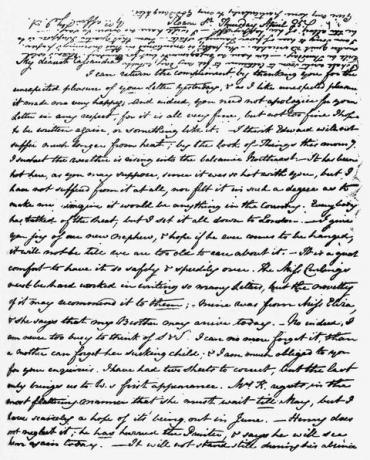 Sloane St Thursday April 25
My dearest Cassandra
I can return the compliment by thanking you for the
unexpected pleasure of your Letter yesterday, & as I like unexpected pleasure,
it made me very happy; And indeed, you need not apologise for your
Letter in any respect, for it is all very fine, but not too fine I hope
to be written again, or something like it. I think Edward will not
suffer much longer from heat; by the look of Things this morng
I suspect the weather is rising into the balsamic Northeast. It has been
hot here, as you may suppose, since it was so hot with you, but I
have not suffered from it at all, nor felt it in such a degree as to
make me imagine it would be anything in the Country. Everybody
has talked of the heat, but I set it all down to London. I give
you joy of our new nephew, & hope if he ever comes to be hanged,
it will not be till we are too old to care about it. It is a great
comfort to have it so safely & speedily over. The Miss Curlings
must be hard worked in writing so many Letters, but the novelty
of it may recommend it to them; mine was from Miss Eliza,
& she says that my Brother may arrive today. No indeed, I
am never too busy to think of S & S. I can no more forget it, than
a mother can forget her sucking child; & I am much obliged to you
for your enquiries. I have had two sheets to correct, but the last
only brings us to W.s first appearance. Mrs K. regrets in the
most flattering manner that she must wait till May, but I
have scarcely a hope of its being out in June. Henry does
not neglect it; he has hurried the Printer, & says he will see
him again today. It will not stand still during his absence